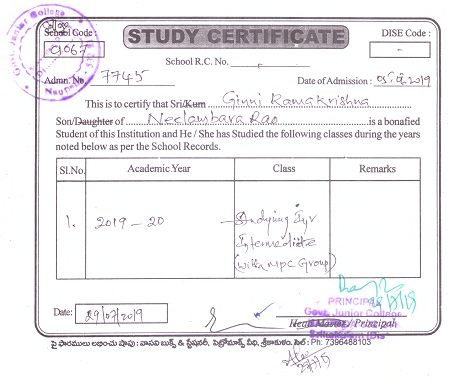 STUDY CERTIFICATE
College
School Code :
9067
DISE Code :
-
School R.C. No.
Admn. No. 7745
Date of Admission : 05/06/2019
This is to certify that Sri/Kum Ginni Ramakrishna
Son/Daughter of Neelambara Rao is a bonafied
Student of this Institution and He / She has Studied the following classes during the years
noted below as per the School Records.
Sl.No. Academic Year Class Remarks
1. 2019 - 20 Studying I yr
Intermediate
(with MPC Group)
PRINCIPAL
Govt. Junior College
Date: 29/07/2019
Head Master / Principal
పై ఫారములు లభించు షాపు : వాసవి బుక్స్ & స్టేషనరీ, పెద్దమార్కెట్ వీధి, శ్రీకాకుళం. సెల్ : Ph: 7396488103